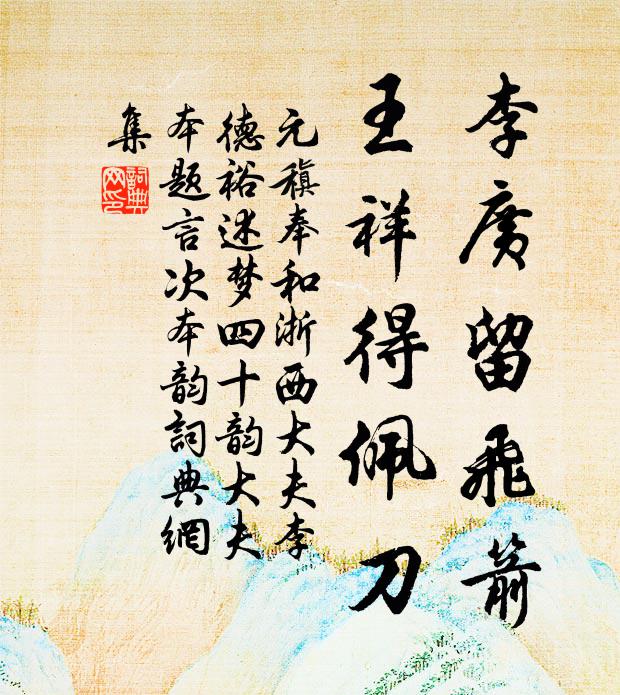 李廣留飛箭
王祥得佩刀
元稹奉和浙西大夫李
德裕述梦四十韵大夫
本题言次本韵詞典網
集
詞典
网印